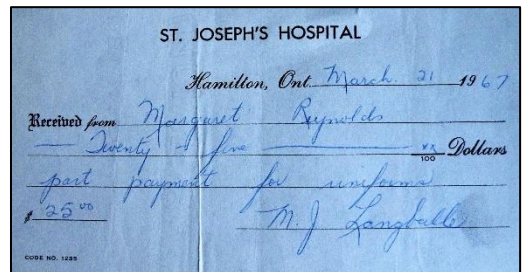 ST. JOSEPH'S HOSPITAL
Hamilton, Ont. March. 21 1967
Received from Margaret Reynolds
Twenty - five xx/100 Dollars
part payment for uniforms
$ 25 00 M. J Langballe
CODE NO. 1235